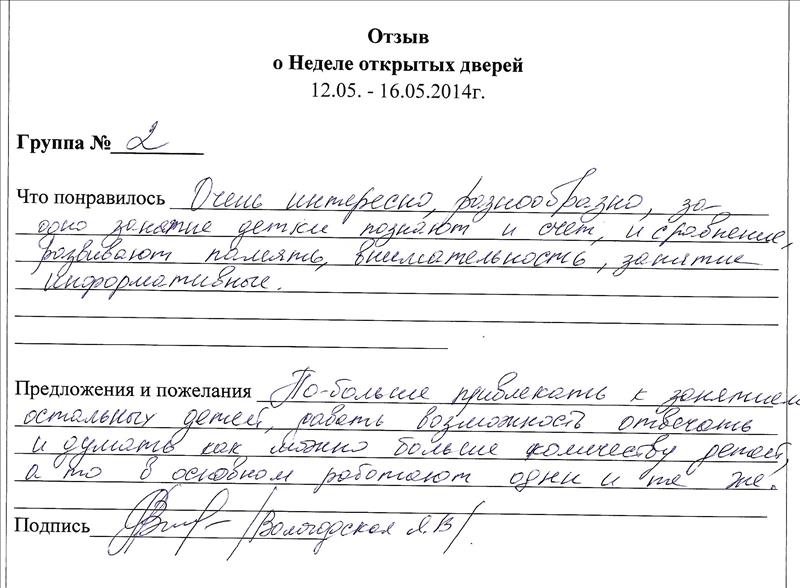 Отзыв
о Неделе открытых дверей
12.05. - 16.05.2014г.
Группа № 2
Что понравилось Очень интересно, разнообразно, за
одно занятие детки познают и счет, и сравнение,
развивают память, внимательность, занятие
информативные.
Предложения и пожелания По-больше привлекать к занятием
остальных детей, давать возможность отвечать
и думать как можно больше количеству детей,
а то в основном работают одни и те же.
Подпись /Вологодская Я.В/